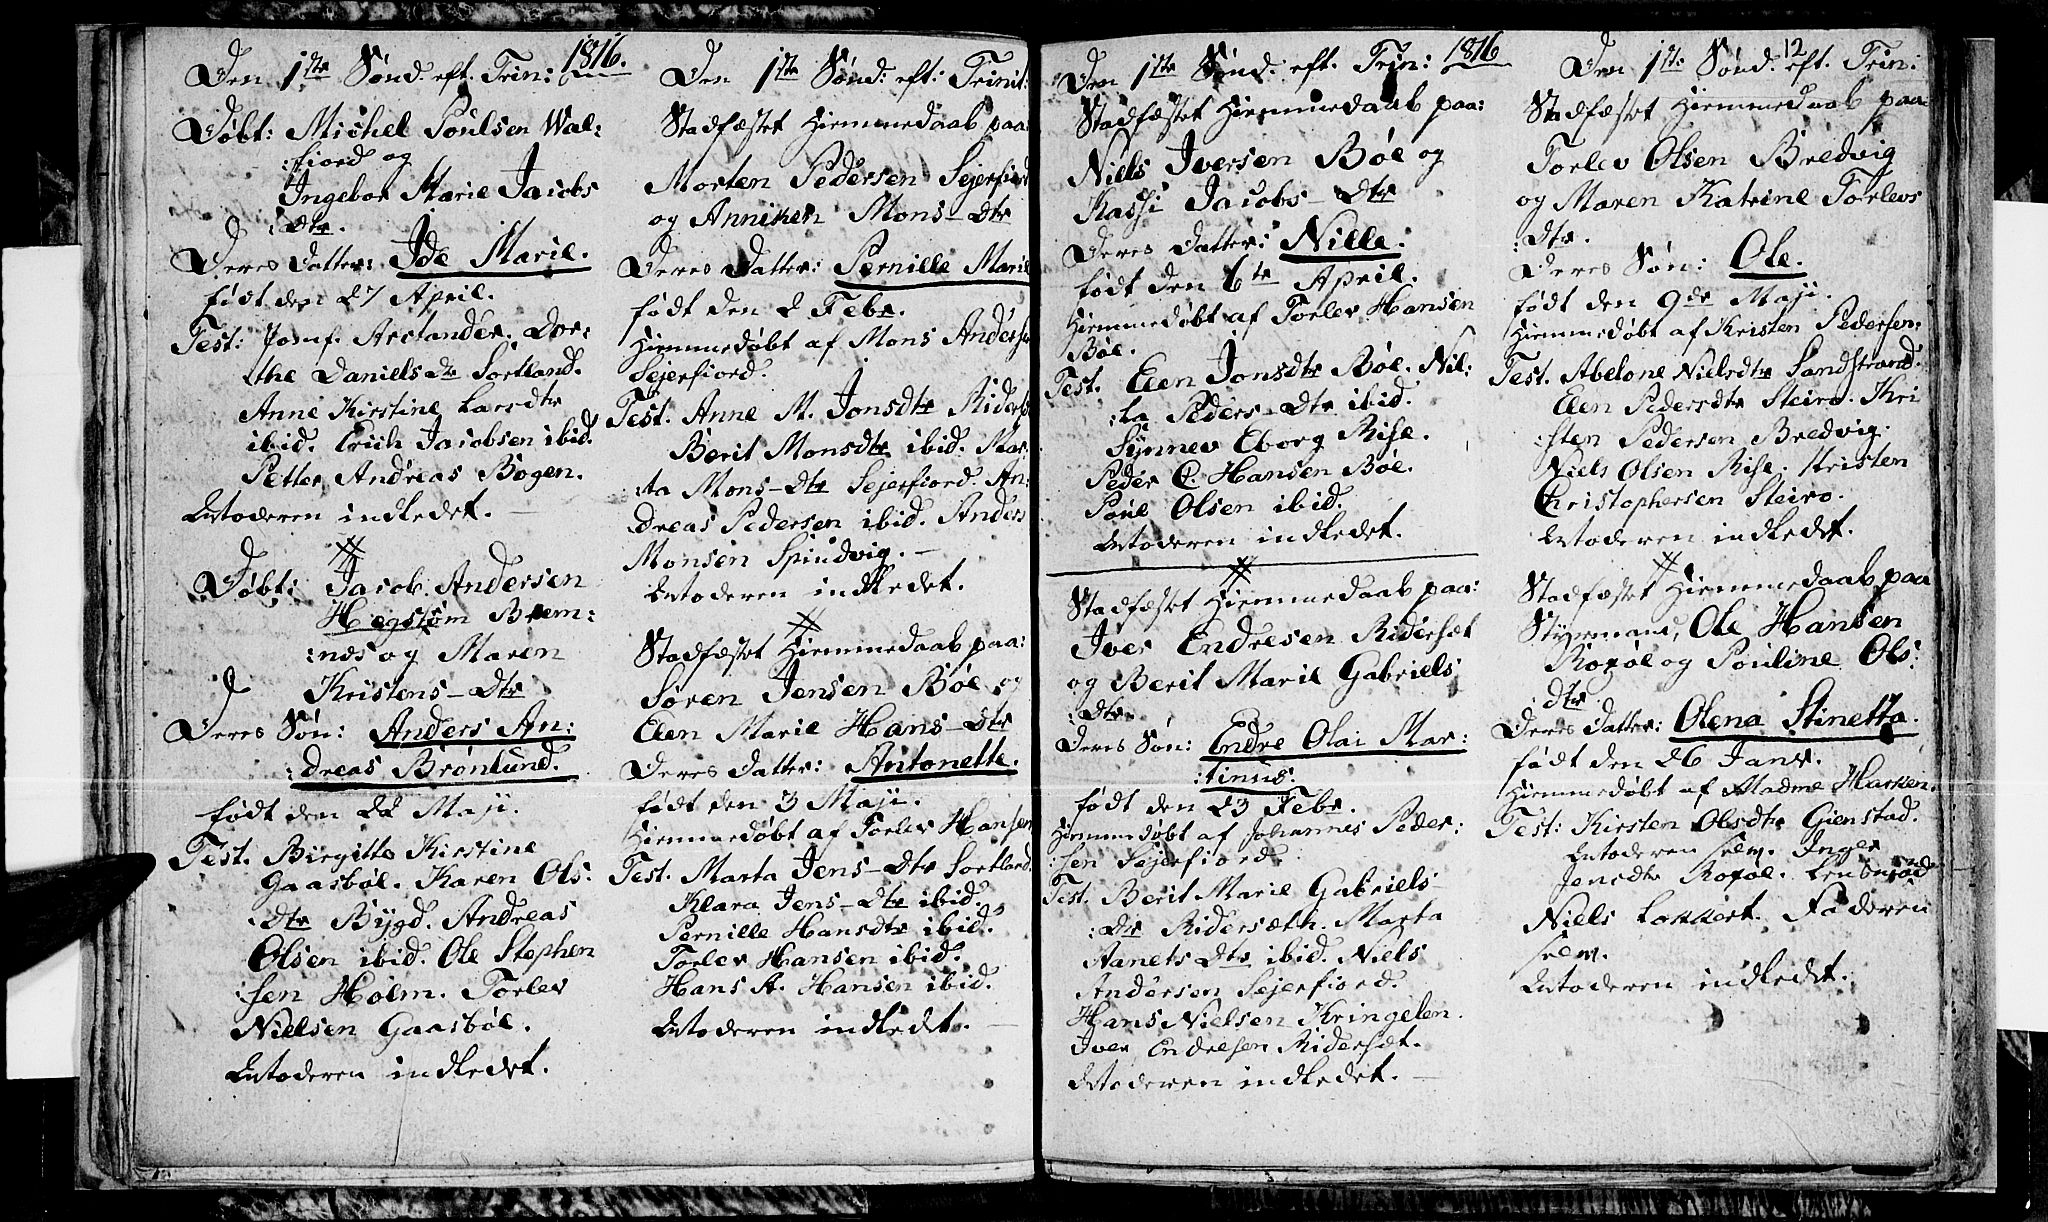 1816.
Den 1ste Sønd. eft. Trin:
Døbt: Michel Poulsen Wal:
:fiord og
Ingebor Marie Jacobs
:Dtr.
Deres Datter: Ide Marie.
født den 27 April.
Test: Jomf. Arctander. Dor:
:the Daniels Dtr Sortland.
Anne Kirstine Larsdtr
ibid. Erich Jacobsen ibid.
Petter Andreas Bogen.
Introderen indledet.
Døbt: Jacob Andersen
Hegstøm Brem:
:næs og Maren
Kristens-Dtr
Deres Søn: Anders An:
:dreas Brønlund.
født den 22 Maji.
Test. Birgitte Kirstine
Gaasbøl. Karen Ols:
:Dtr Bygd. Andreas
Olsen ibid. Ole Stephen
:sen Holm. Torlev
Nielsen Gaasbøl.
Introderen indledet.
Den 1ste Sønd: eft: Trinit:
Stadfæstet Hiemmedaab paa:
Morten Pedersen Sejerfiord
og Anniken Mons-Dtr
Deres Datter: Pernille Marie
født den 2 Febr.
Hiemmedøbt af Mons Andersen
Sejerfiord.
Test. Anne M. Jonsdtr Riders
Berit Monsdtr ibid. Mar:
:ta Mons-Dtr Sejerfiord. An:
dreas Pedersen ibid. Anders
Monsen Spindvig.
Introderen indledet.
Stadfæstet Hiemmedaab paa:
Søren Jensen Bøe og
Elen Marie Hans-Dtr
Deres Datter: Antonette.
født den 3 Maji.
Hiemmedøbt af Torlev Hansen
Test. Marta Jens-Dtr Sortland.
Klara Jens-Dtr ibid.
Pernille Hansdtr ibid.
Torlev Hansen ibid.
Hans A. Hansen ibid.
Introderen indledet.
1816
Den 1ste Sønd. eft. Trin:
Stadfæstet Hiemmedaab paa:
Niels Iversen Bøe og
Kassi Jacobs-Dtr
Deres Datter: Nille.
født den 6te April.
Hiemmedøbt af Torlev Hansen
Bøe.
Test. Elen Jonsdtr Bøe. Nil:
:la Peders-Dtr ibid.
Synnev Eborg Rise.
Peder C. Hansen Bøe.
Poul Olsen ibid.
Introderen indledet.
Stadfæstet Hiemmedaab paa:
Iver Endresen Ridersæt
og Berit Marie Gabriels
:Dtr
Deres Søn: Endre Olai Mar:
:tinus.
født den 23 Febr.
Hiemmedøbt af Johannes Peder:
:sen Sejerfiord.
Test. Berit Marie Gabriels
:Dtr Ridersæth. Marta
Aanets Dtr ibid. Niels
Andersen Sejerfiord.
Hans Nielsen Kringelen.
Iver Endresen Ridersæt.
Introderen indledet.
12
Den 1ste Sønd. eft. Trin:
Stadfæstet Hiemmedaab paa
Torlev Olsen Bredvig
og Maren Katrine Torlevs
:Dtr.
Deres Søn: Ole.
født den 9de Maji.
Hiemmedøbt af Kristen Pedersen.
Test. Abelone Nielsdtr Sandstrand.
Elen Pedersdtr Steiro. Kri
:sten Pedersen Bredvig.
Niels Olsen Rise. Kristen
Christophersen Steiro.
Introderen indledet.
Stadfæstet Hiemmedaab paa
Styrmand, Ole Hansen
Roxøe og Pouline Ols:
:Dtr
Deres Datter: Olena Stinetta.
født den 26 Janr.
Hiemmedøbt af Madme Harken.
Test: Kirsten Olsdtr Gienstad.
Introderen selv. Inger
Jensdtr Roxøe.
Niels Lokkert. Faderen
selv.
Introderen indledet.